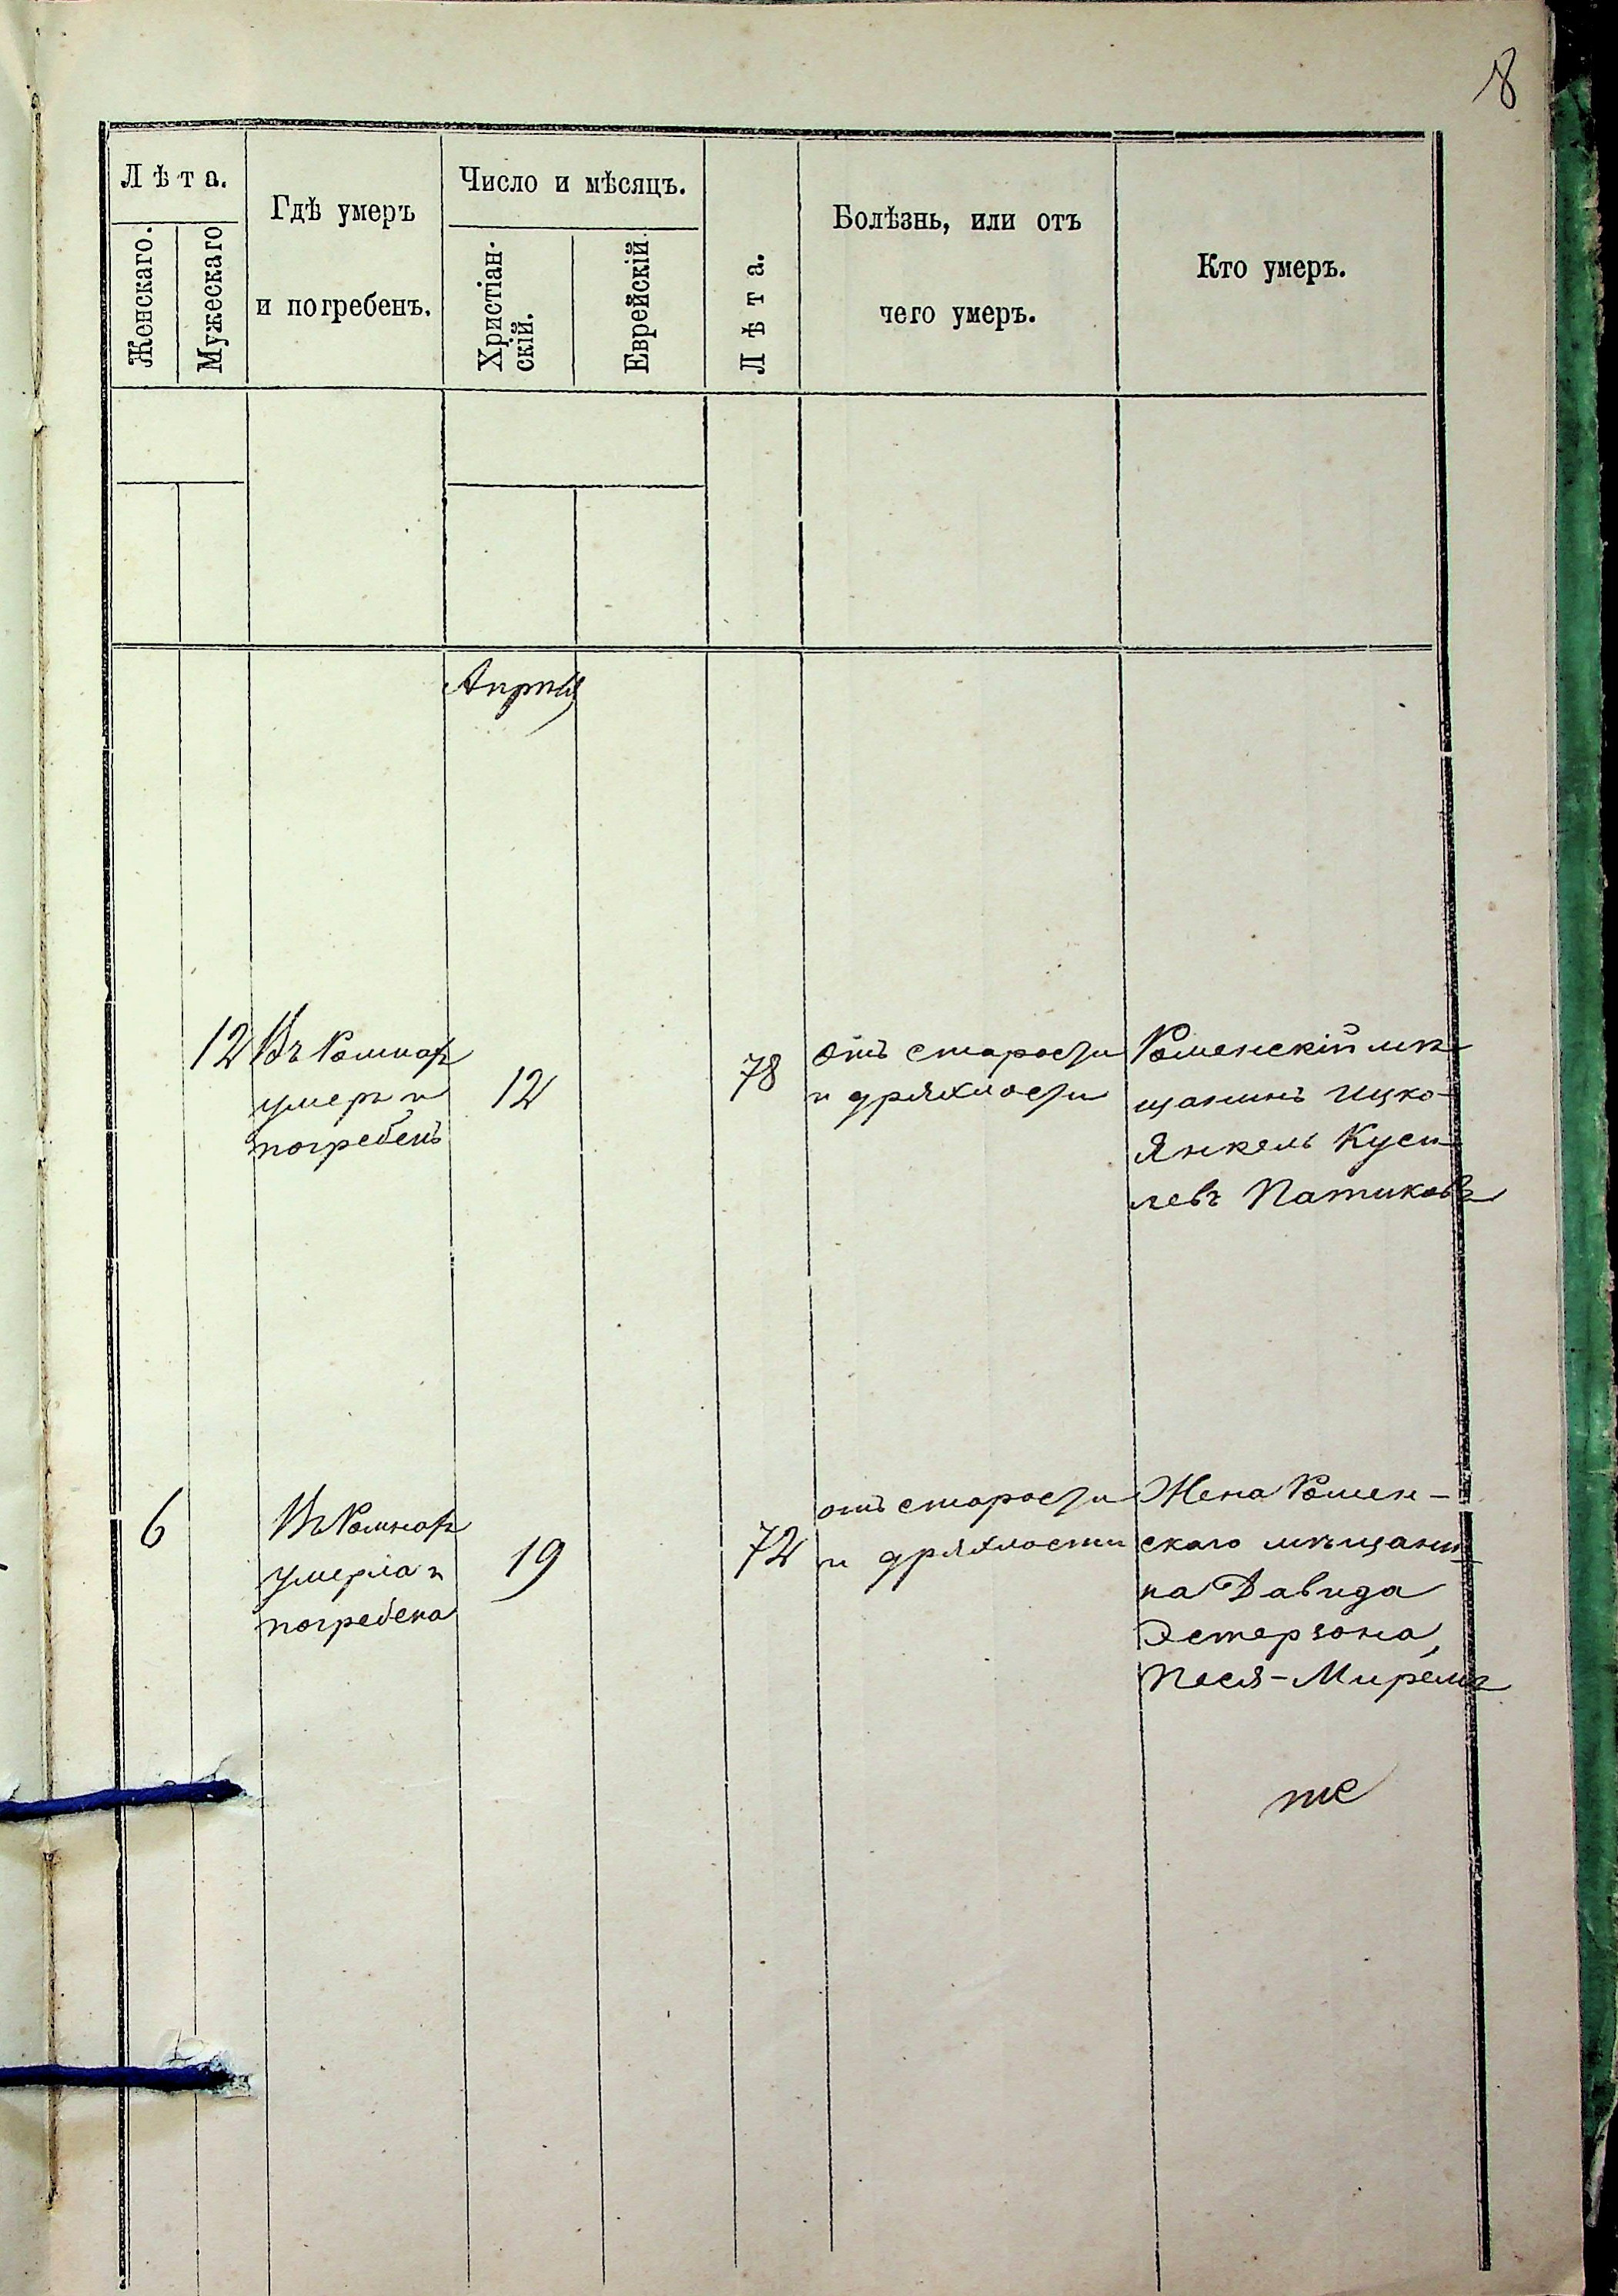 8
Лѣта.
Женскаго.
Мужескаго
Гдѣ умеръ
и погребенъ.
Число и мѣсяцъ.
Христіан-
скій.
Еврейскій.
Лѣта.
Болѣзнь, или отъ
чего умеръ.
Кто умеръ.
Апрѣль
12
Въ Ромнахъ
умеръ и
погребенъ
12
78
отъ старости
и дряхлости
Роменскій мѣ-
щанинъ Ицко-
Янкель Куси-
левъ Патиковъ
6
Въ Ромнахъ
умерла и
погребена
19
72
отъ старости
и дряхлости
Жена Ромен-
скаго мѣщани-
на Давида
Эстерзона,
Песя-Мирель